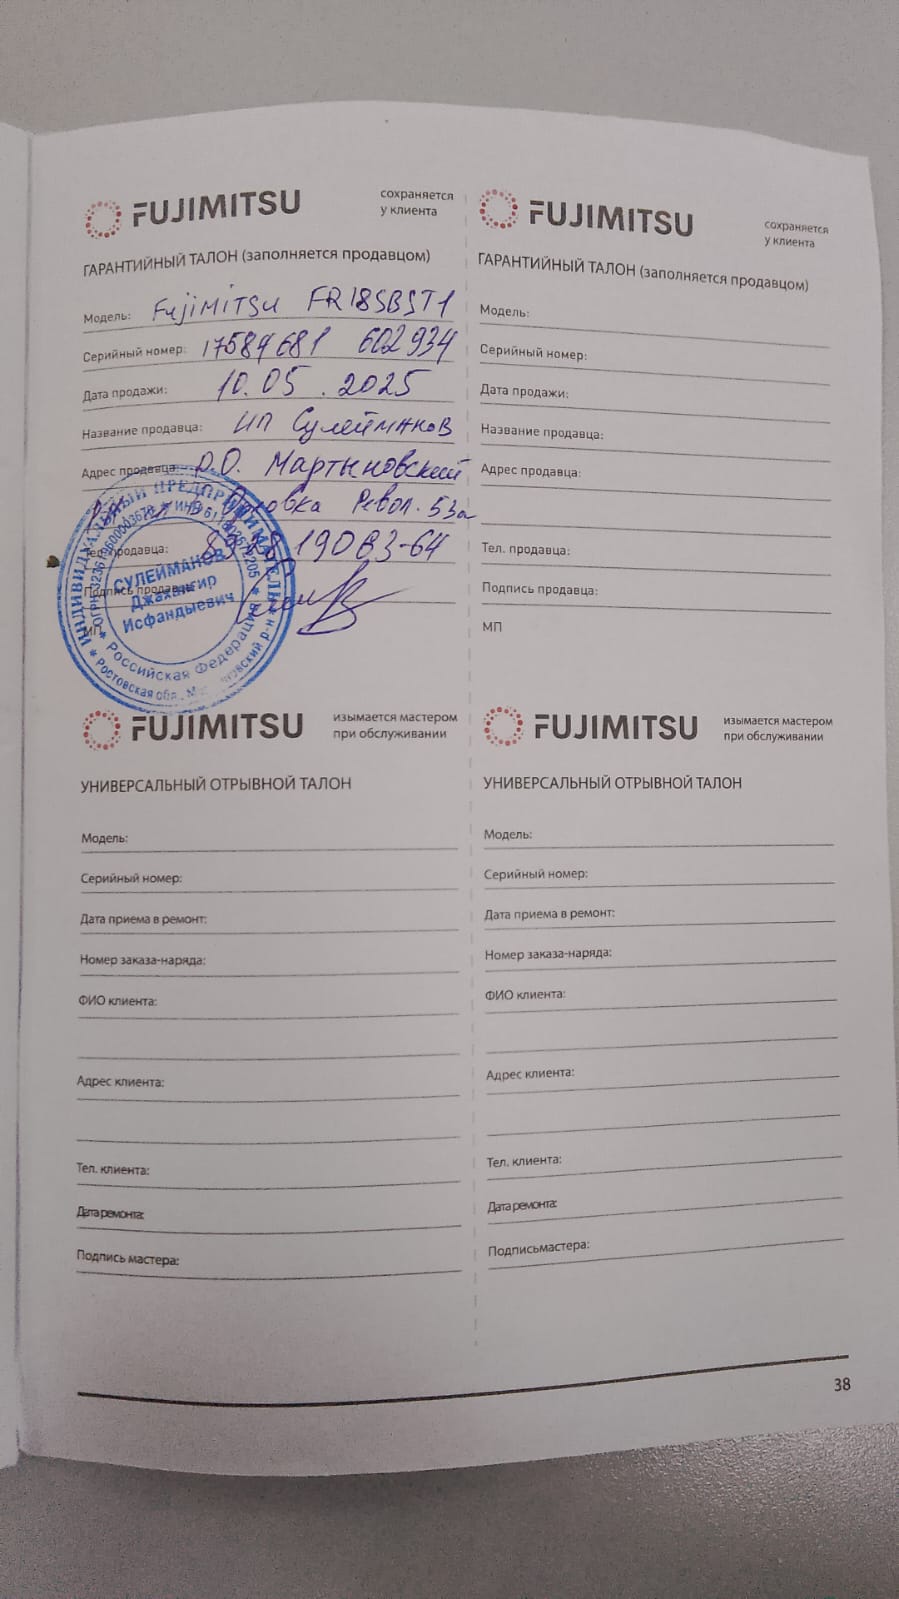 FUJIMITSU
сохраняется
у клиента
ГАРАНТИЙНЫЙ ТАЛОН (заполняется продавцом)
Модель: Fujimitsu FR18SBST1
Серийный номер: 17584681 602934
Дата продажи: 10.05.2025
Название продавца: ИП Сулейманов
Адрес продавца: Р.О. Мартыновский
Револ. 53а
Тел. продавца: 19063-64
Подпись продавца:
МП
ИНДИВИДУАЛЬНЫЙ ПРЕДПРИНИМАТЕЛЬ
СУЛЕЙМАНОВ
Джахангир
Исфандыевич
Российская Федерация
Ростовская обл.
FUJIMITSU
сохраняется
у клиента
ГАРАНТИЙНЫЙ ТАЛОН (заполняется продавцом)
Модель:
Серийный номер:
Дата продажи:
Название продавца:
Адрес продавца:
Тел. продавца:
Подпись продавца:
МП
FUJIMITSU
изымается мастером
при обслуживании
УНИВЕРСАЛЬНЫЙ ОТРЫВНОЙ ТАЛОН
Модель:
Серийный номер:
Дата приема в ремонт:
Номер заказа-наряда:
ФИО клиента:
Адрес клиента:
Тел. клиента:
Дата ремонта:
Подпись мастера:
FUJIMITSU
изымается мастером
при обслуживании
УНИВЕРСАЛЬНЫЙ ОТРЫВНОЙ ТАЛОН
Модель:
Серийный номер:
Дата приема в ремонт:
Номер заказа-наряда:
ФИО клиента:
Адрес клиента:
Тел. клиента:
Дата ремонта:
Подписьмастера:
38